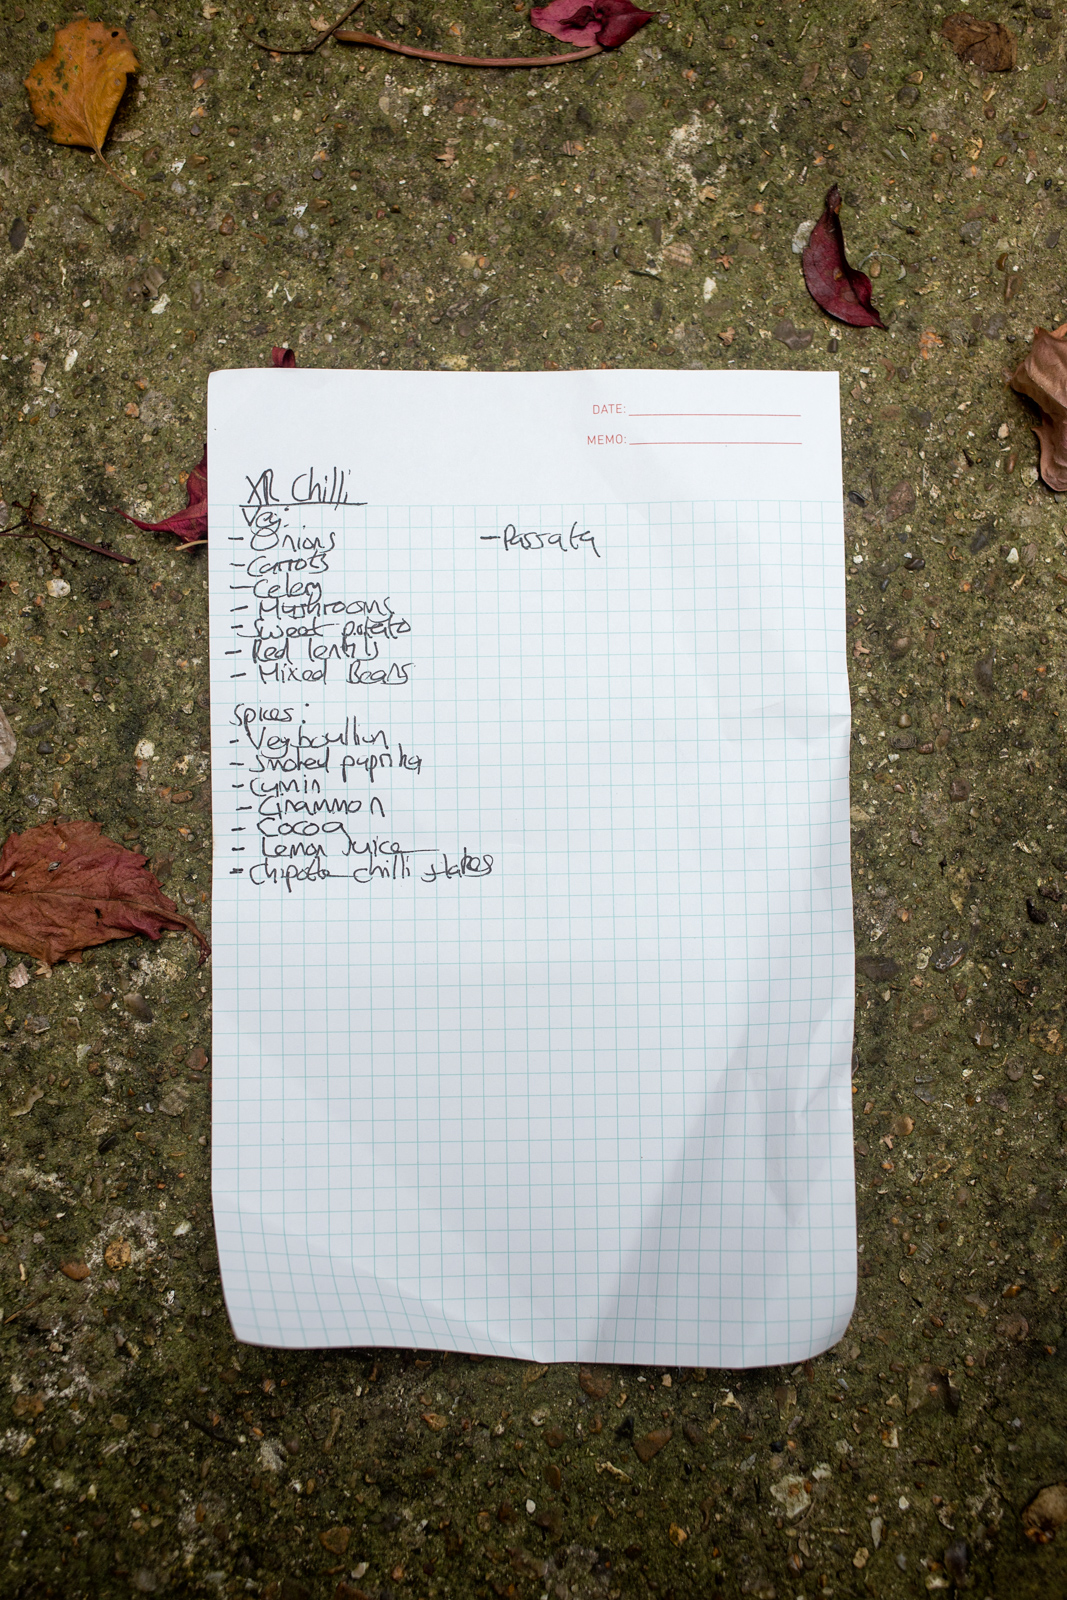 DATE:
MEMO:
XR Chilli
Veg:
- Onions
- Carrots
- Celery
- Mushrooms
- Sweet potato
- Red lentils
- Mixed Beans
- Passata
Spices:
- Veg bouillon
- Smoked paprika
- Cumin
- Cinammon
- Cocoa
- Lemon Juice
- Chipotle chilli flakes